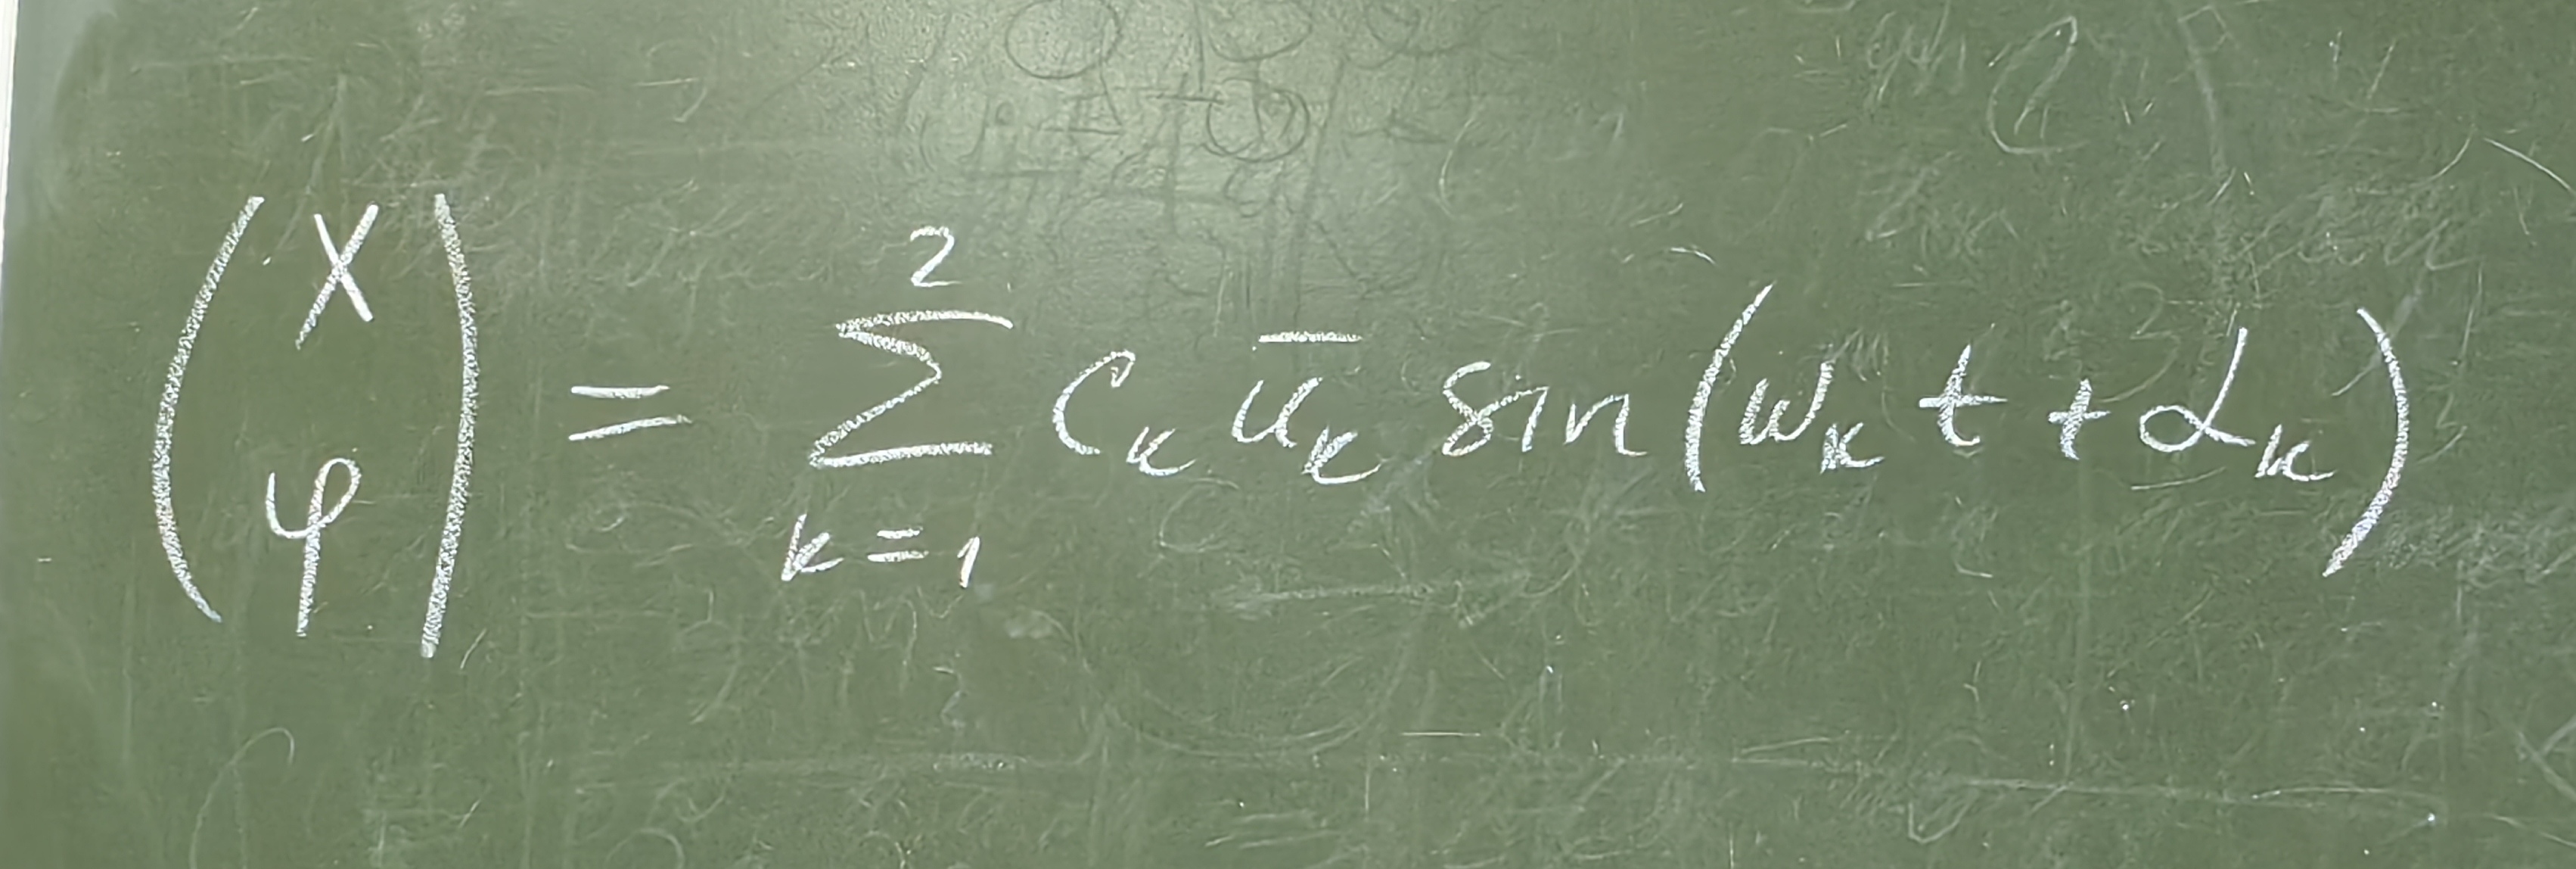 (x φ) = ∑_{k=1}^{2} C_k \overline{u}_k sin(ω_k t + α_k)